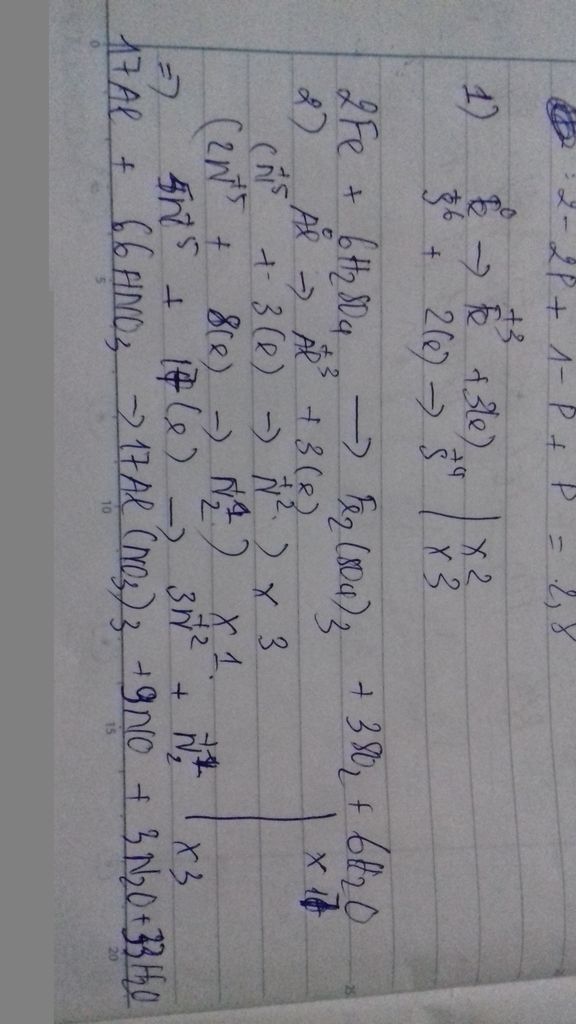 : 2 - 2P + 1 - P + P = 2,8
1) Fe⁰ → Fe⁺³ + 3(e) | x 2
S⁺⁶ + 2(e) → S⁺⁴ | x 3
2Fe + 6H₂SO₄ → Fe₂(SO₄)₃ + 3SO₂ + 6H₂O
2) Al⁰ → Al⁺³ + 3(e) | x 17
(N⁺⁵ + 3(e) → N⁺²) x 3
(2N⁺⁵ + 8(e) → N₂⁺¹) x 1
=> 5N⁺⁵ + 17(e) → 3N⁺² + N₂⁺¹ | x 3
17Al + 66HNO₃ → 17Al(NO₃)₃ + 9NO + 3N₂O + 33H₂O